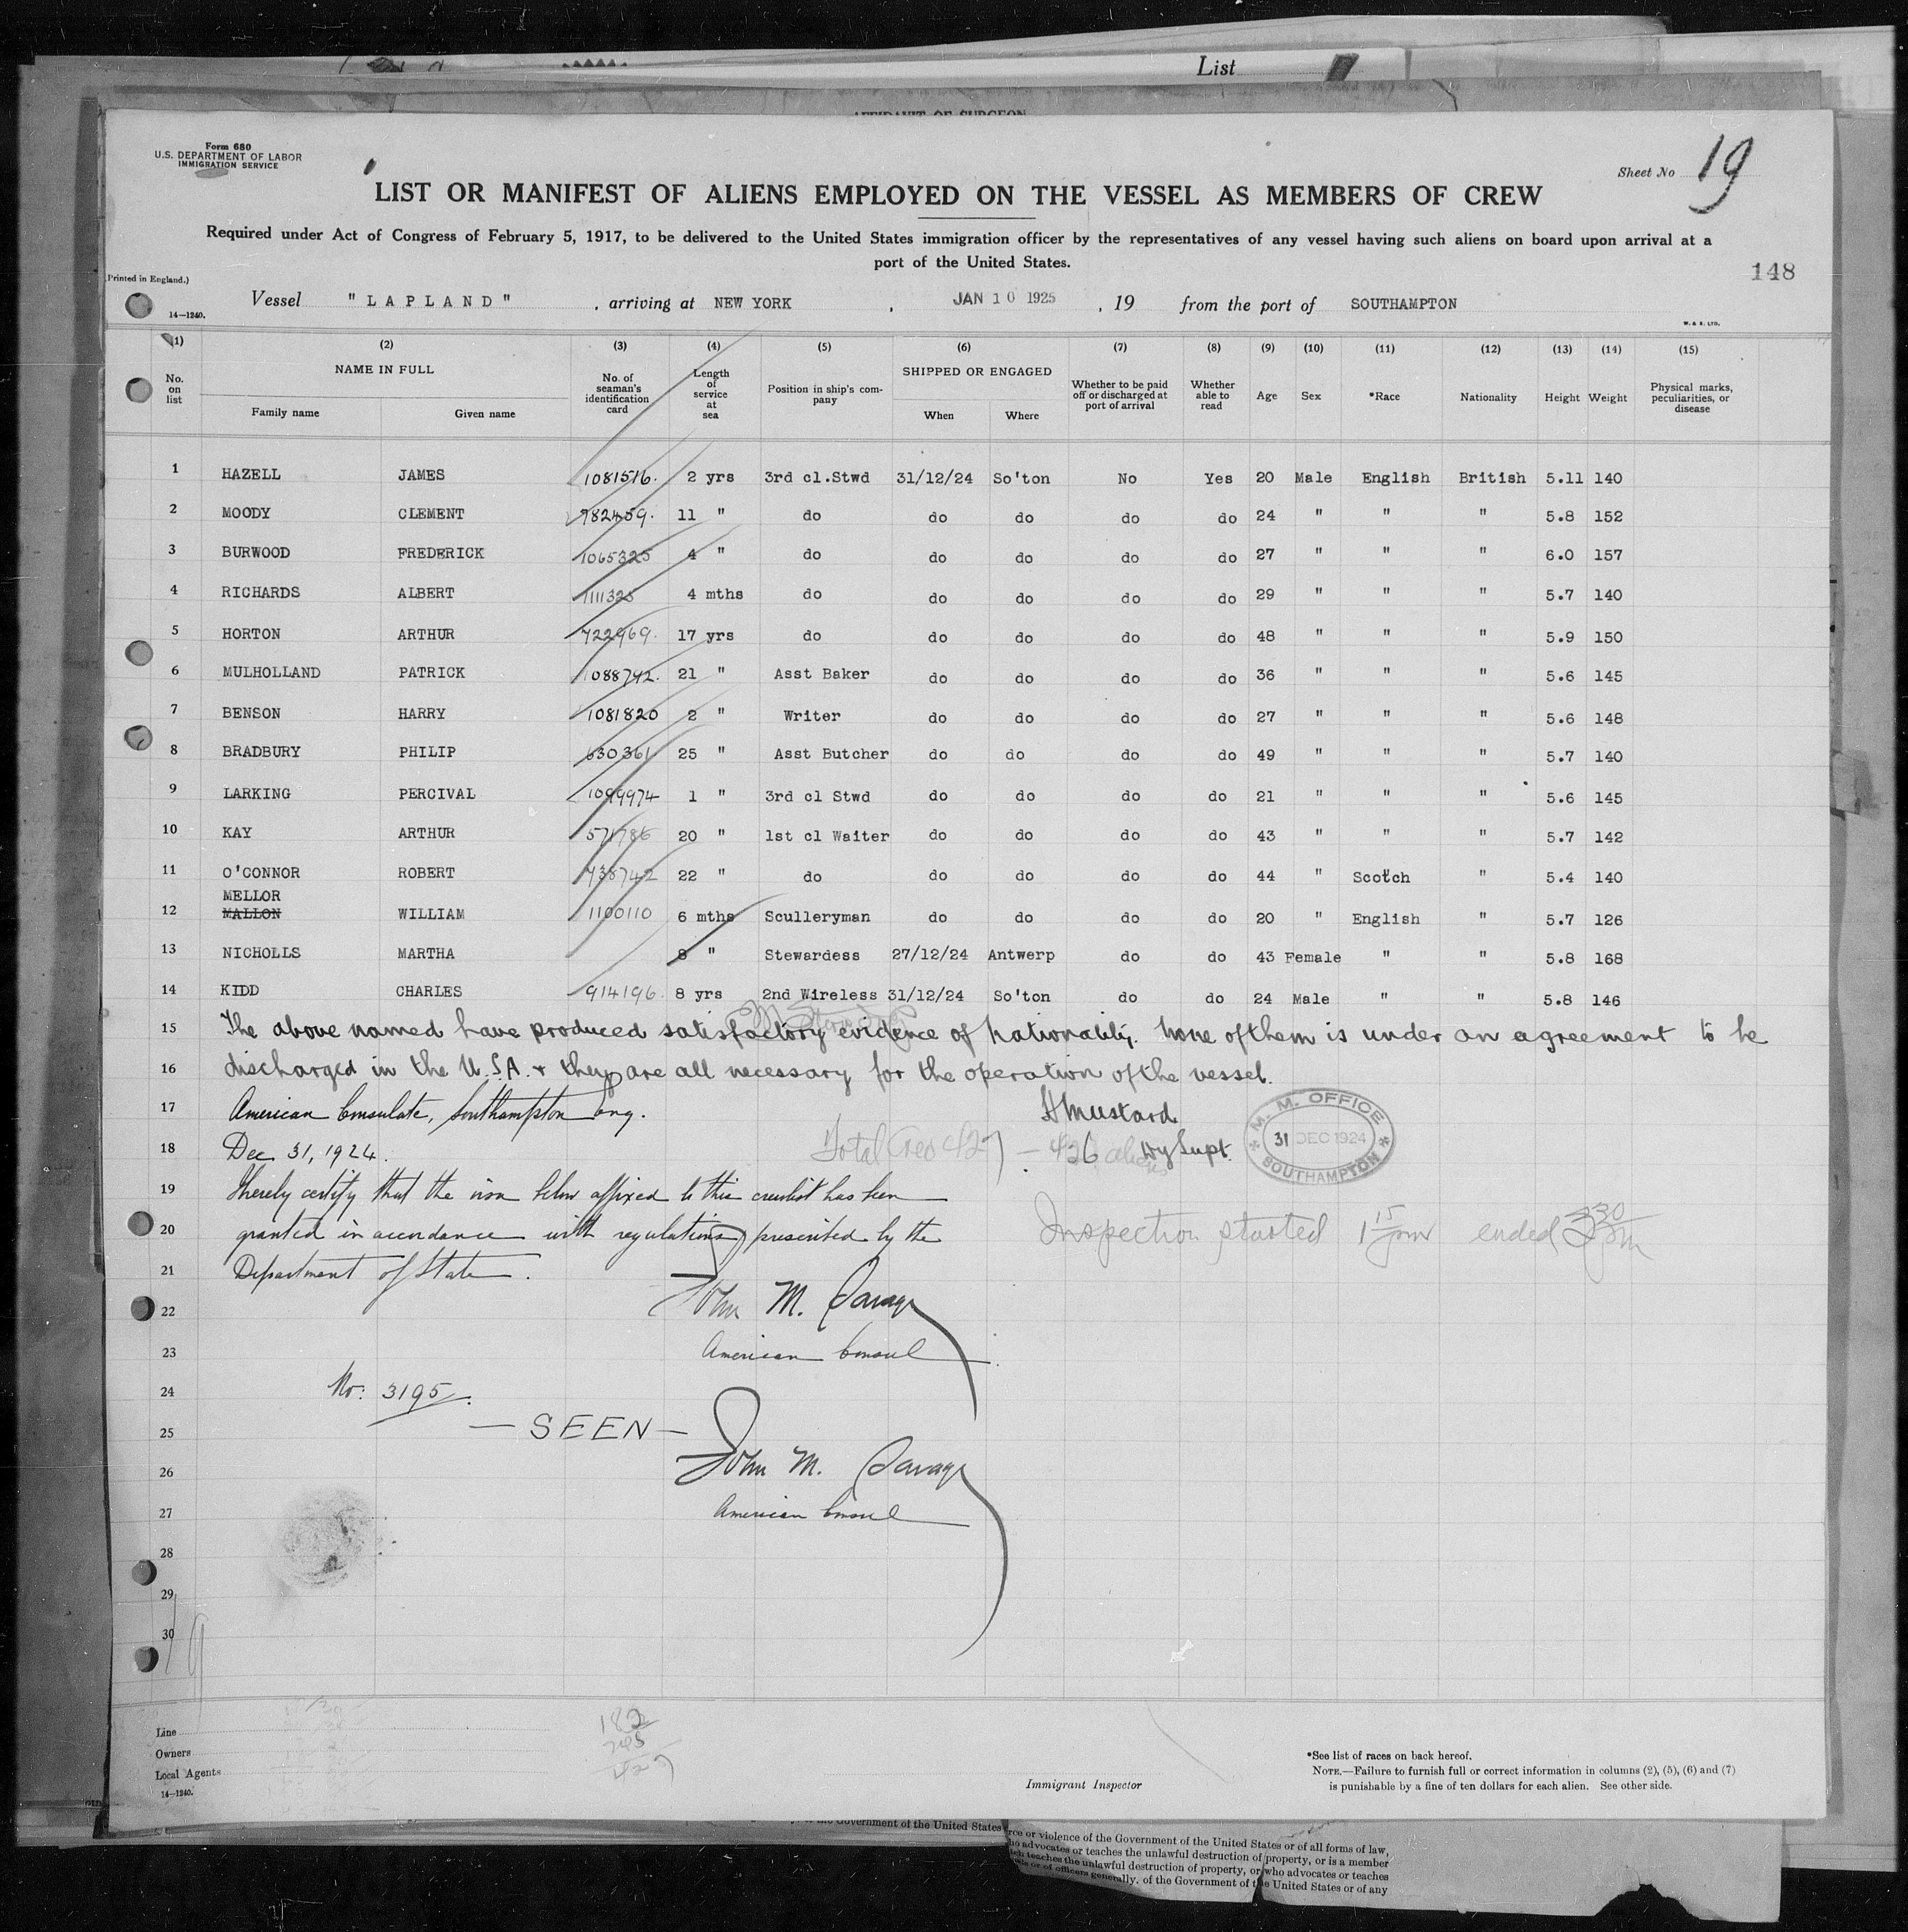 List
AFFIDAVIT OF SURGEON
Form 680
U.S. DEPARTMENT OF LABOR
IMMIGRATION SERVICE
Sheet No 19
LIST OR MANIFEST OF ALIENS EMPLOYED ON THE VESSEL AS MEMBERS OF CREW
Required under Act of Congress of February 5, 1917, to be delivered to the United States immigration officer by the representatives of any vessel having such aliens on board upon arrival at a
port of the United States.
148
(Printed in England.)
Vessel "LAPLAND", arriving at NEW YORK, JAN 10 1925, 19 from the port of SOUTHAMPTON
14—1240.
W. & S. LTD.
(1) (2) (3) (4) (5) (6) (7) (8) (9) (10) (11) (12) (13) (14) (15)
No. on list NAME IN FULL Family name Given name No. of seaman's identification card Length of service at sea Position in ship's company SHIPPED OR ENGAGED When Where Whether to be paid off or discharged at port of arrival Whether able to read Age Sex *Race Nationality Height Weight Physical marks, peculiarities, or disease
1 HAZELL JAMES 1081516. 2 yrs 3rd cl.Stwd 31/12/24 So'ton No Yes 20 Male English British 5.11 140
2 MOODY CLEMENT 982459. 11 " do do do do do 24 " " " 5.8 152
3 BURWOOD FREDERICK 1065325 4 " do do do do do 27 " " " 6.0 157
4 RICHARDS ALBERT 1111325 4 mths do do do do do 29 " " " 5.7 140
5 HORTON ARTHUR 722969. 17 yrs do do do do do 48 " " " 5.9 150
6 MULHOLLAND PATRICK 1088742. 21 " Asst Baker do do do do 36 " " " 5.6 145
7 BENSON HARRY 1081820 2 " Writer do do do do 27 " " " 5.6 148
8 BRADBURY PHILIP 630361 25 " Asst Butcher do do do do 49 " " " 5.7 140
9 LARKING PERCIVAL 1099974 1 " 3rd cl Stwd do do do do 21 " " " 5.6 145
10 KAY ARTHUR 571786 20 " 1st cl Waiter do do do do 43 " " " 5.7 142
11 O'CONNOR ROBERT 738742 22 " do do do do do 44 " Scotch " 5.4 140
MELLOR
12 MALLON WILLIAM 1100110 6 mths Sculleryman do do do do 20 " English " 5.7 126
13 NICHOLLS MARTHA 8 " Stewardess 27/12/24 Antwerp do do 43 Female " " 5.8 168
14 KIDD CHARLES 914196. 8 yrs 2nd Wireless 31/12/24 So'ton do do 24 Male " " 5.8 146
15 The above named have produced satisfactory evidence of nationality. None of them is under an agreement to be
16 discharged in the U.S.A. & they are all necessary for the operation of the vessel.
17 American Consulate, Southampton Eng. H Mustard
18 Dec. 31, 1924. Total Crew 427 — 426 aliens Dy Supt.
M. M. OFFICE
31 DEC 1924
SOUTHAMPTON
19 I hereby certify that the visa below affixed to this crewlist has been
20 granted in accordance with regulations prescribed by the Inspection started 1 15 pm ended 3 30 pm
21 Department of State.
22 John M. Savage
23 American Consul
24 No. 3195.
25 — SEEN —
26 John M. Savage
27 American Consul
28
29
30
19
Line
182
Owners
245
Local Agents
427
14—1240.
Immigrant Inspector
*See list of races on back hereof.
NOTE.—Failure to furnish full or correct information in columns (2), (5), (6) and (7)
is punishable by a fine of ten dollars for each alien. See other side.
Government of the United States
rce or violence of the Government of the United States or of all forms of law,
ho advocates or teaches the unlawful destruction of property, or is a member
teaches the unlawful destruction of property, or who advocates or teaches
of officers generally. of the Government of the United States or of any